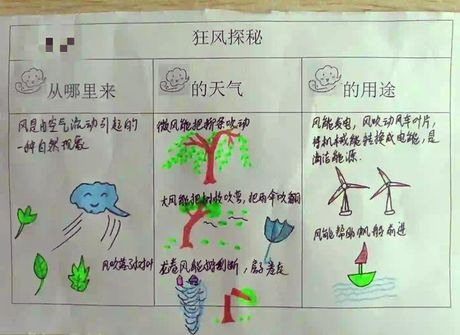 狂风探秘
从哪里来
风是由空气流动引起的
一种自然现象
风吹落了树叶
的天气
微风能把柳条吹动
大风能把树枝吹弯，把雨伞吹翻
龙卷风能树刮断，房子卷走
的用途
风能发电，风吹动风车叶片，
将机械能转换成电能，是
清洁能源.
风能帮助帆船前进